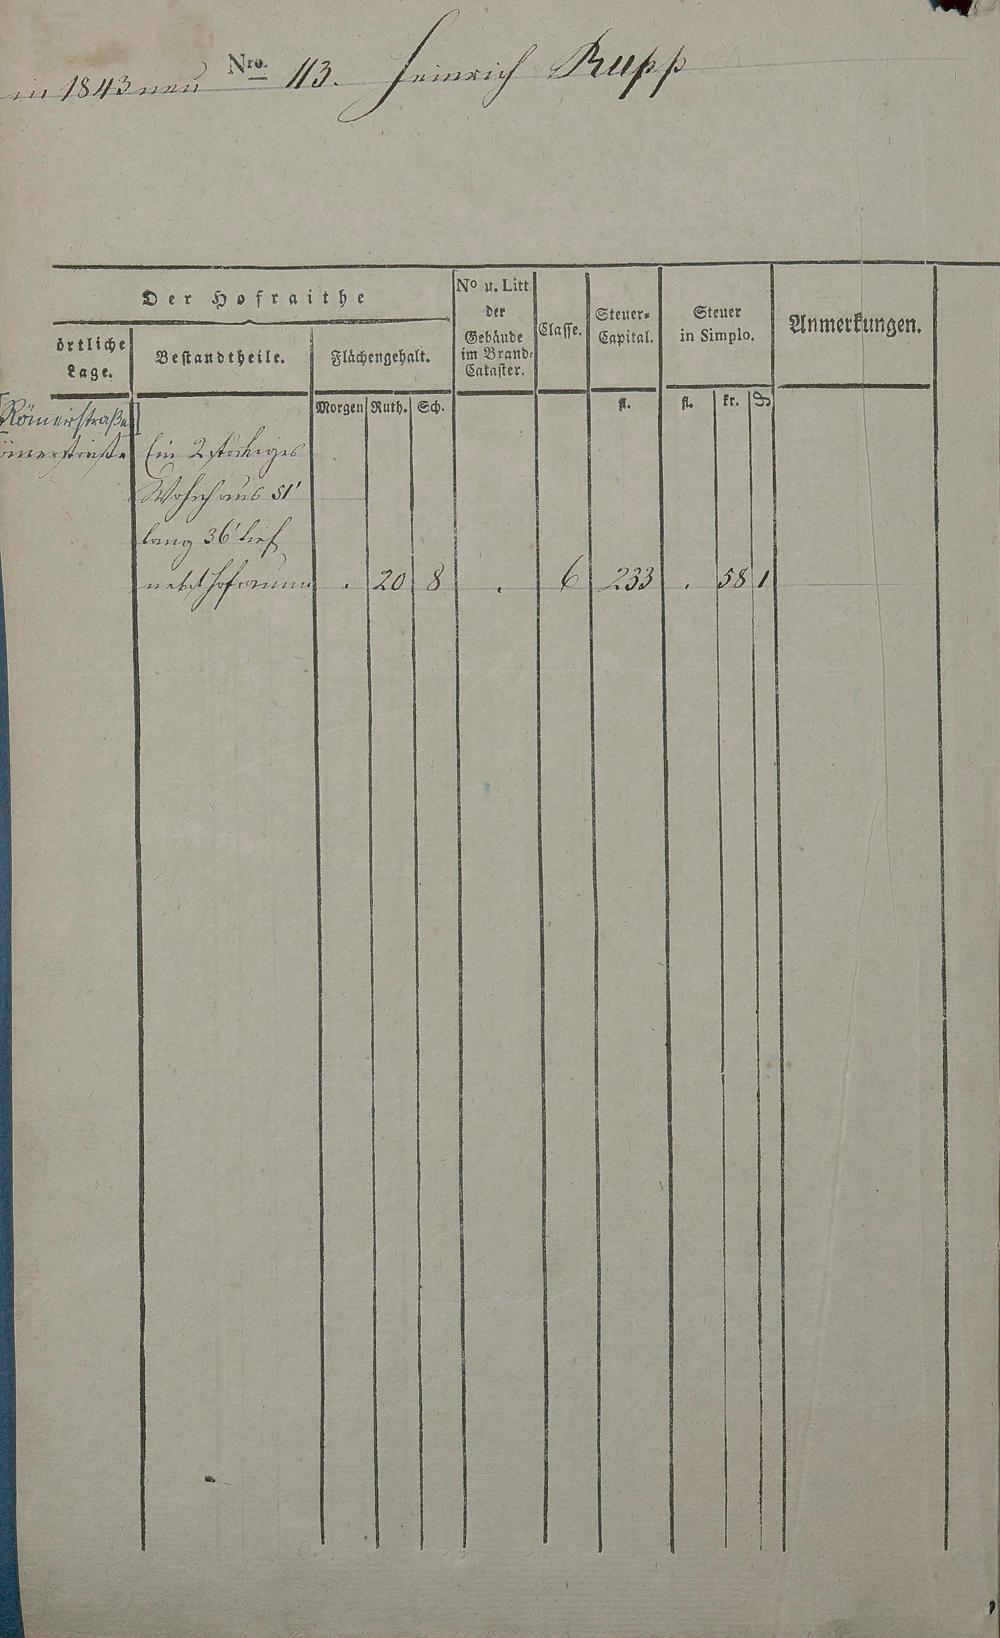 in 1843 neu Nro. 113. Heinrich Rupp
Der Hofraithe
örtliche Lage.
Bestandtheile.
Flächengehalt.
No u. Litt. der Gebäude im Brand-Cataster.
Classe.
Steuer-Capital.
Steuer in Simplo.
Anmerkungen.
Morgen Ruth. Sch. fl. fl. kr. ₰
[Römerstraße]
ömerstraße Ein 2 stöckiges
Wohnhaus 51'
lang 36' tief
nebst Hofraum . 20 8 . 6 233 . 58 1